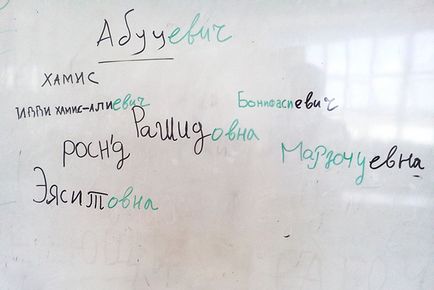 Абуцевич
ХАМИС
ИВВИ ХАМИС-АЛИЕВИЧ Бонифасиевич
Рашидовна
РОСН'Д Марзочуевна
Эяситовна